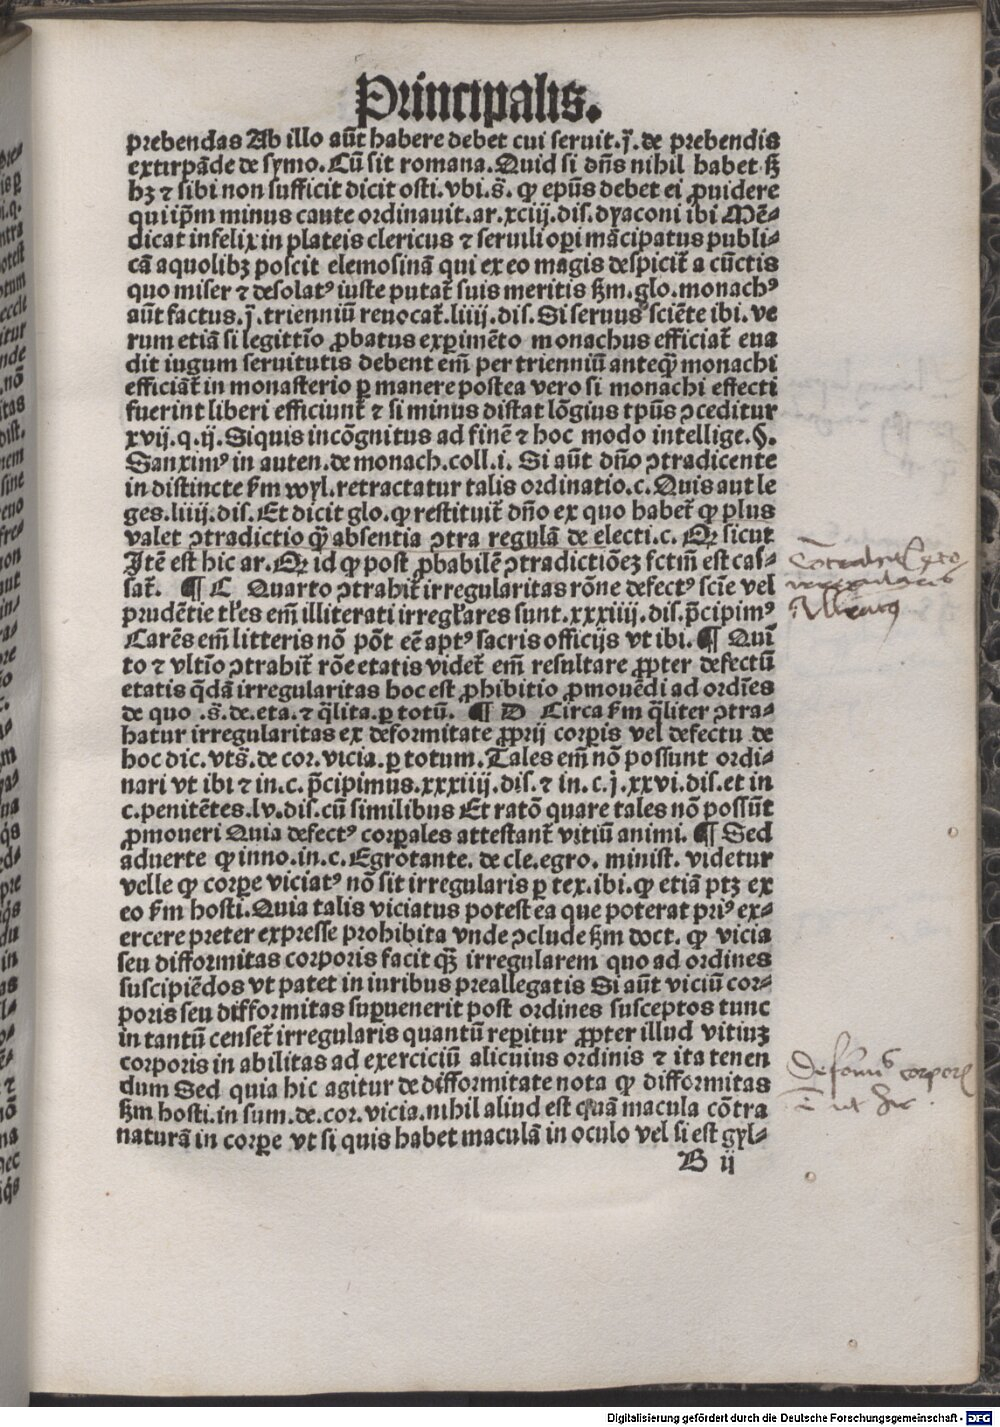 Principalis.
prebendas Ab illo aūt habere debet cui seruit.j̄. de prebendis
extirpāde de symo. Cū sit romana. Quid si dn̄s nihil habet sꝫ
hꝫ ⁊ sibi non sufficit dicit osti. vbi.s̄. ꝙ ep̄us debet ei ꝓuidere
qui ip̄m minus caute ordinauit.ar.xciij.dis. dyaconi ibi Mē⸗
dicat infelix in plateis clericus ⁊ seruili oꝑi mācipatus publi⸗
cā aquolibꝫ poscit elemosinā qui ex eo magis despicit̄ a cūctis
quo miser ⁊ desolatꝰ iuste putat̄ suis meritis ẜm.glo.monachꝰ
aūt factus.j̄.trienniū reuocat̄.liiij.dis. Si seruus sciēte ibi. ve
rum etiā si legittīo ꝓbatus experimēto monachus efficiat̄ eua
dit iugum seruitutis debent em̄ per trienniū anteꝙ̄ monachi
efficiāt̄ in monasterio ꝑ manere postea vero si monachi effecti
fuerint liberi efficiunt̄ ⁊ si minus distat lōgius tp̄us ꝯceditur
xvij.q.ij. Siquis incōgnitus ad finē ⁊ hoc modo intellige.§.
Sanximꝰ in auten.de monach.coll.i. Si aūt dn̄o ꝯtradicente
in distincte ẜm wyl.retractatur talis ordinatio.c. Quis aut le
ges.liiij.dis. Et dicit glo.ꝙ restituit̄ dn̄o ex quo habet̄ ꝙ plus
valet ꝯtradictio ꝙ̄ absentia ꝯtra regulā de electi.c. Qꝛ sicut
Itē est hic ar. Qꝛ id ꝙ post ꝓbabilē ꝯtradictiōeꝫ fctm̄ est cas⸗
sat̄. ¶ C Quarto ꝯtrahit̄ irregularitas rōne defectꝰ scīe vel
prudētie tl̄es em̄ illiterati irregl̄ares sunt.xxxiiij.dis.p̄cipimꝰ
Carēs em̄ litteris nō pōt eē aptꝰ sacris officijs vt ibi. ¶ Qui̅
to ⁊ vltīo ꝯtrahit̄ rōe etatis videt̄ em̄ resultare ꝓpter defectū
etatis q̄dā irregularitas hoc est ꝓhibitio ꝓmouēdi ad ordīes
de quo .s̄. de.eta.⁊ q̄lita.ꝑ totū. ¶ D Circa ẜm q̄liter ꝯtra⸗
hatur irregularitas ex deformitate ꝓprij corꝑis vel defectu de
hoc dic.vts̄.de cor.vicia.ꝑ totum. Tales em̄ nō possunt ordi⸗
nari vt ibi ⁊ in.c.p̄cipimus.xxxiiij.dis.⁊ in.c.j.xxvi.dis.et in
c.penitētes.lv.dis.cū similibus Et ratō quare tales nō possūt
ꝓmoueri Quia defectꝰ corꝑales attestant̄ vitiū animi. ¶ Sed
aduerte ꝙ inno.in.c. Egrotante. de cle.egro. minist. videtur
velle ꝙ corꝑe viciatꝰ nō sit irregularis ꝑ tex.ibi.ꝙ etiā ptꝫ ex
eo ẜm hosti. Quia talis viciatus potest ea que poterat priꝰ ex⸗
ercere preter expresse prohibita vnde ꝯclude ẜm doct. ꝙ vicia
seu difformitas corporis facit q̄ꝫ irregularem quo ad ordines
suscipiēdos vt patet in iuribus preallegatis Si aūt viciū cor⸗
poris seu difformitas suꝑuenerit post ordines susceptos tunc
in tantū censet̄ irregularis quantū reꝑitur ꝓpter illud vitiuꝫ
corporis in abilitas ad exerciciū alicuius ordinis ⁊ ita tenen
dum Sed quia hic agitur de difformitate nota ꝙ difformitas
ẜm hosti.in sum.de.cor.vicia.nihil aliud est quā macula cōtra
naturā in corꝑe vt si quis habet maculā in oculo vel si est gyl⸗
B ij
irregularis
corporis
Digitalisierung gefördert durch die Deutsche Forschungsgemeinschaft - DFG